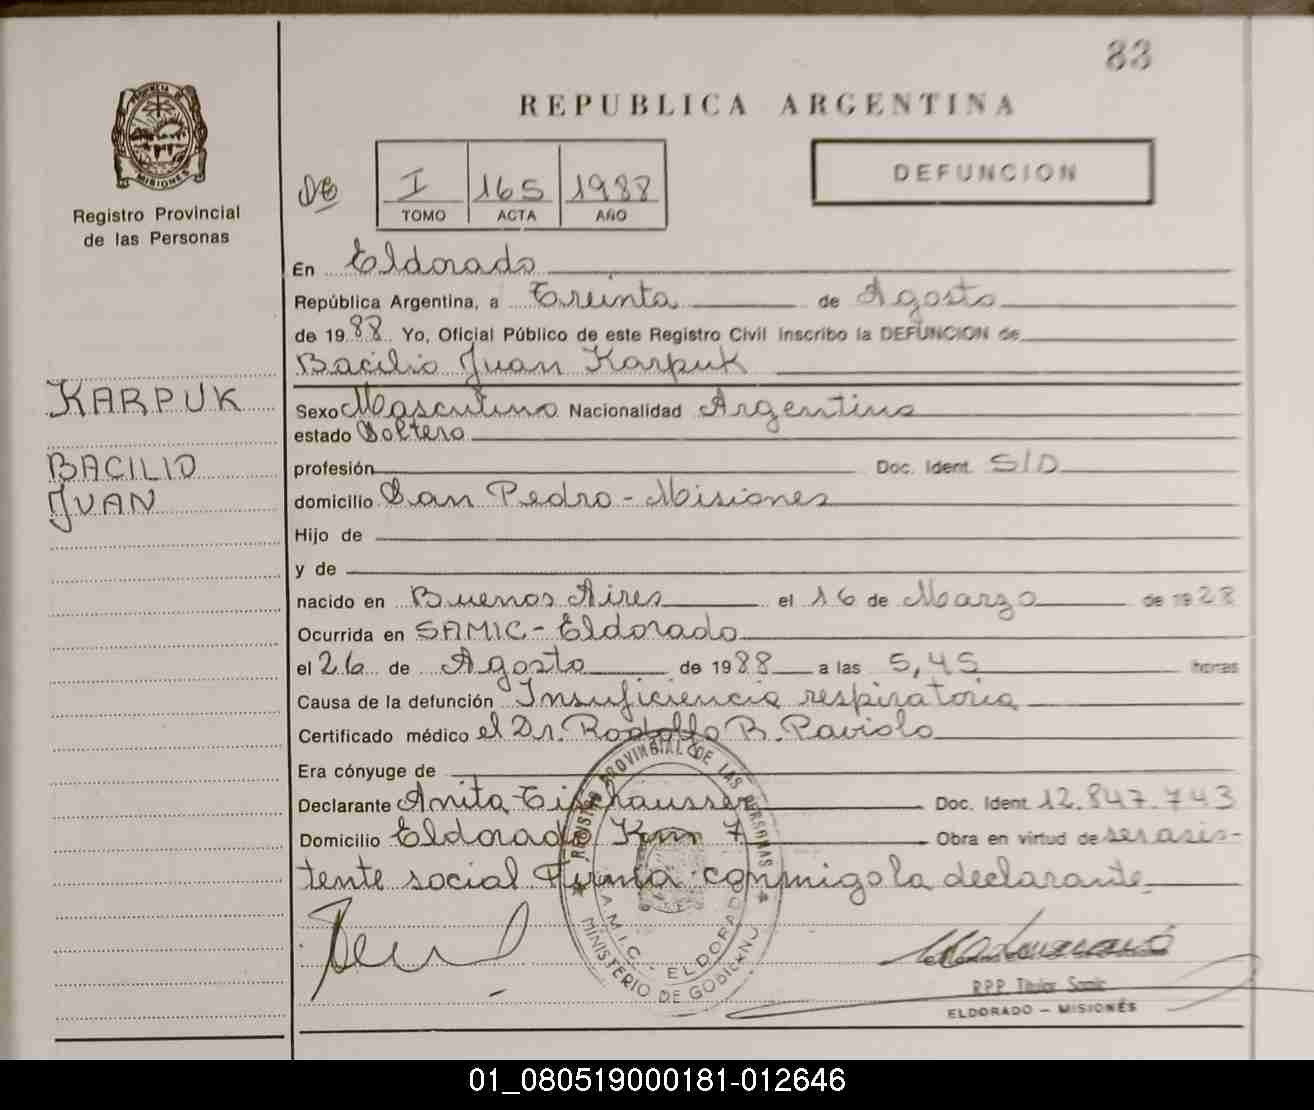 83
REPUBLICA ARGENTINA
PROVINCIA DE
MISIONES
Registro Provincial
de las Personas
DE
I 165 1988
TOMO ACTA AÑO
DEFUNCION
En Eldorado
República Argentina, a Treinta de Agosto
de 1988 Yo, Oficial Público de este Registro Civil inscribo la DEFUNCION de
Bacilio Juan Karpuk
KARPUK
BACILIO
JUAN
Sexo Masculino Nacionalidad Argentina
estado Soltero
profesión Doc. Ident. S/D
domicilio San Pedro - Misiones
Hijo de
y de
nacido en Buenos Aires el 16 de Marzo de 1928
Ocurrida en SAMIC - Eldorado
el 26 de Agosto de 1988 a las 5,45 horas
Causa de la defunción Insuficiencia respiratoria
Certificado médico el Dr. Rodolfo B. Paviolo
Era cónyuge de
Declarante Anita Doc. Ident 12.847.743
Domicilio Eldorado Km Obra en virtud de ser asis-
tente social Firma conmigo la declarante
REGISTRO PROVINCIAL DE LAS PERSONAS
SAMIC - ELDORADO
MINISTERIO DE GOBIERNO
R.P.P. Titular Samic
ELDORADO - MISIONES
01_080519000181-012646